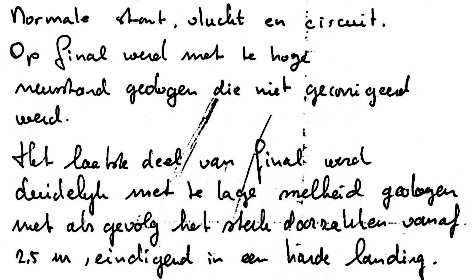 Normale start, vlucht en circuit.
Op final werd met te hoge
neusstand gevlogen die niet gecorrigeerd
werd.
Het laatste deel van final werd
duidelijk met te lage snelheid gevlogen
met als gevolg het sterk doorzakken vanaf
2,5 m, eindigend in een harde landing.